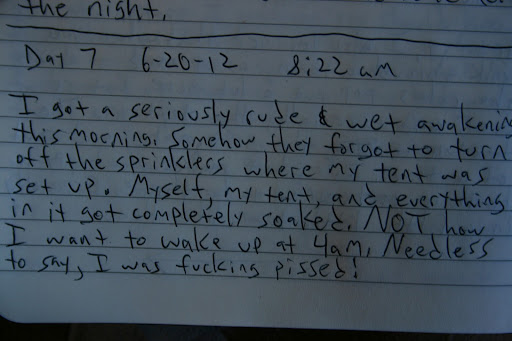 the night.
Day 7 6-20-12 8:22 am
I got a seriously rude & wet awakening
this morning. Somehow they forgot to turn
off the sprinklers where my tent was
set up. Myself, my tent, and everything
in it got completely soaked. NOT how
I want to wake up at 4am. Needless
to say, I was fucking pissed!